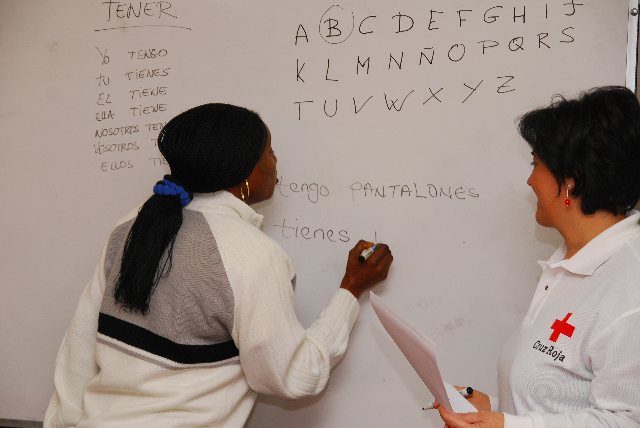 TENER
YO TENGO
TU TIENES
EL TIENE
ELLA TIENE
NOSOTROS
VOSOTROS
ELLOS
A B C D E F G H I J
K L M N Ñ O P Q R S
T U V W X Y Z
tengo PANTALONES
tienes
Cruz Roja